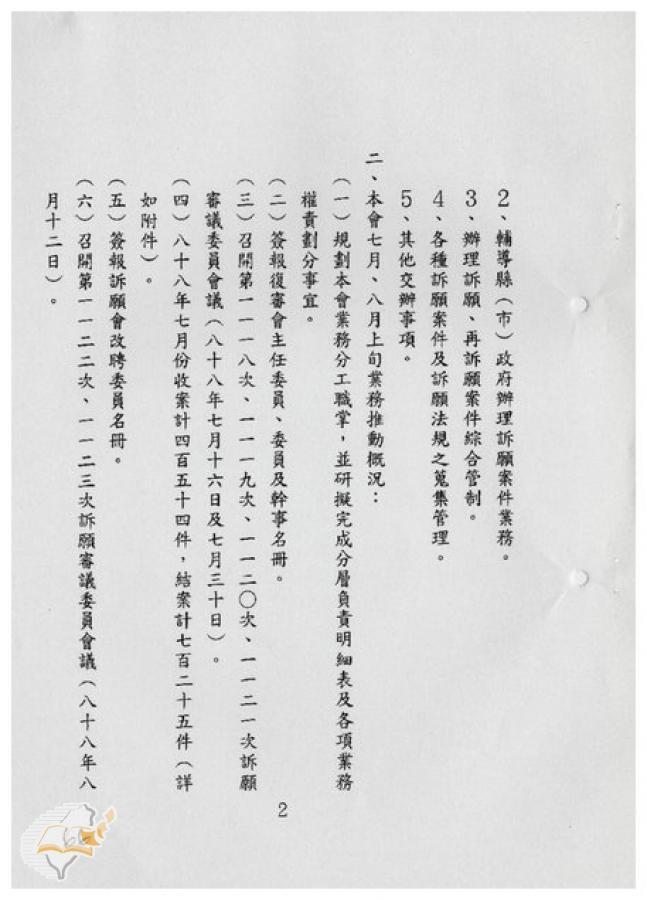 2、輔導縣（市）政府辦理訴願案件業務。
3、辦理訴願、再訴願案件綜合管制。
4、各種訴願案件及訴願法規之蒐集管理。
5、其他交辦事項。
二、本會七月、八月上旬業務推動概況：
（一）規劃本會業務分工職掌，並研擬完成分層負責明細表及各項業務
權責劃分事宜。
（二）簽報復審會主任委員、委員及幹事名冊。
（三）召開第一一一八次、一一一九次、一一二〇次、一一二一次訴願
審議委員會議（八十八年七月十六日及七月三十日）。
（四）八十八年七月份收案計四百五十四件，結案計七百二十五件（詳
如附件）。
（五）簽報訴願會改聘委員名冊。
（六）召開第一一二二次、一一二三次訴願審議委員會議（八十八年八
月十二日）。
2